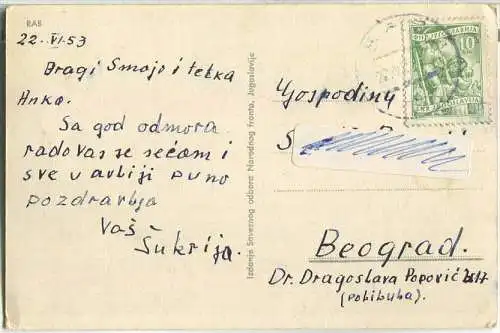 RAB
22. VI. 53
Dragi Smajo i tetka
Anko.
Sa god odmora
radovas se sećam i
sve u avliji puno
pozdravlja
Vaš
Šukrija.
Izdanje Saveznog odbora Narodnog fronta, Jugoslavije
10
FNR JUGOSLAVIJA
Gospodinu
S
Beograd.
Dr. Dragoslava Popović
(Palilula).